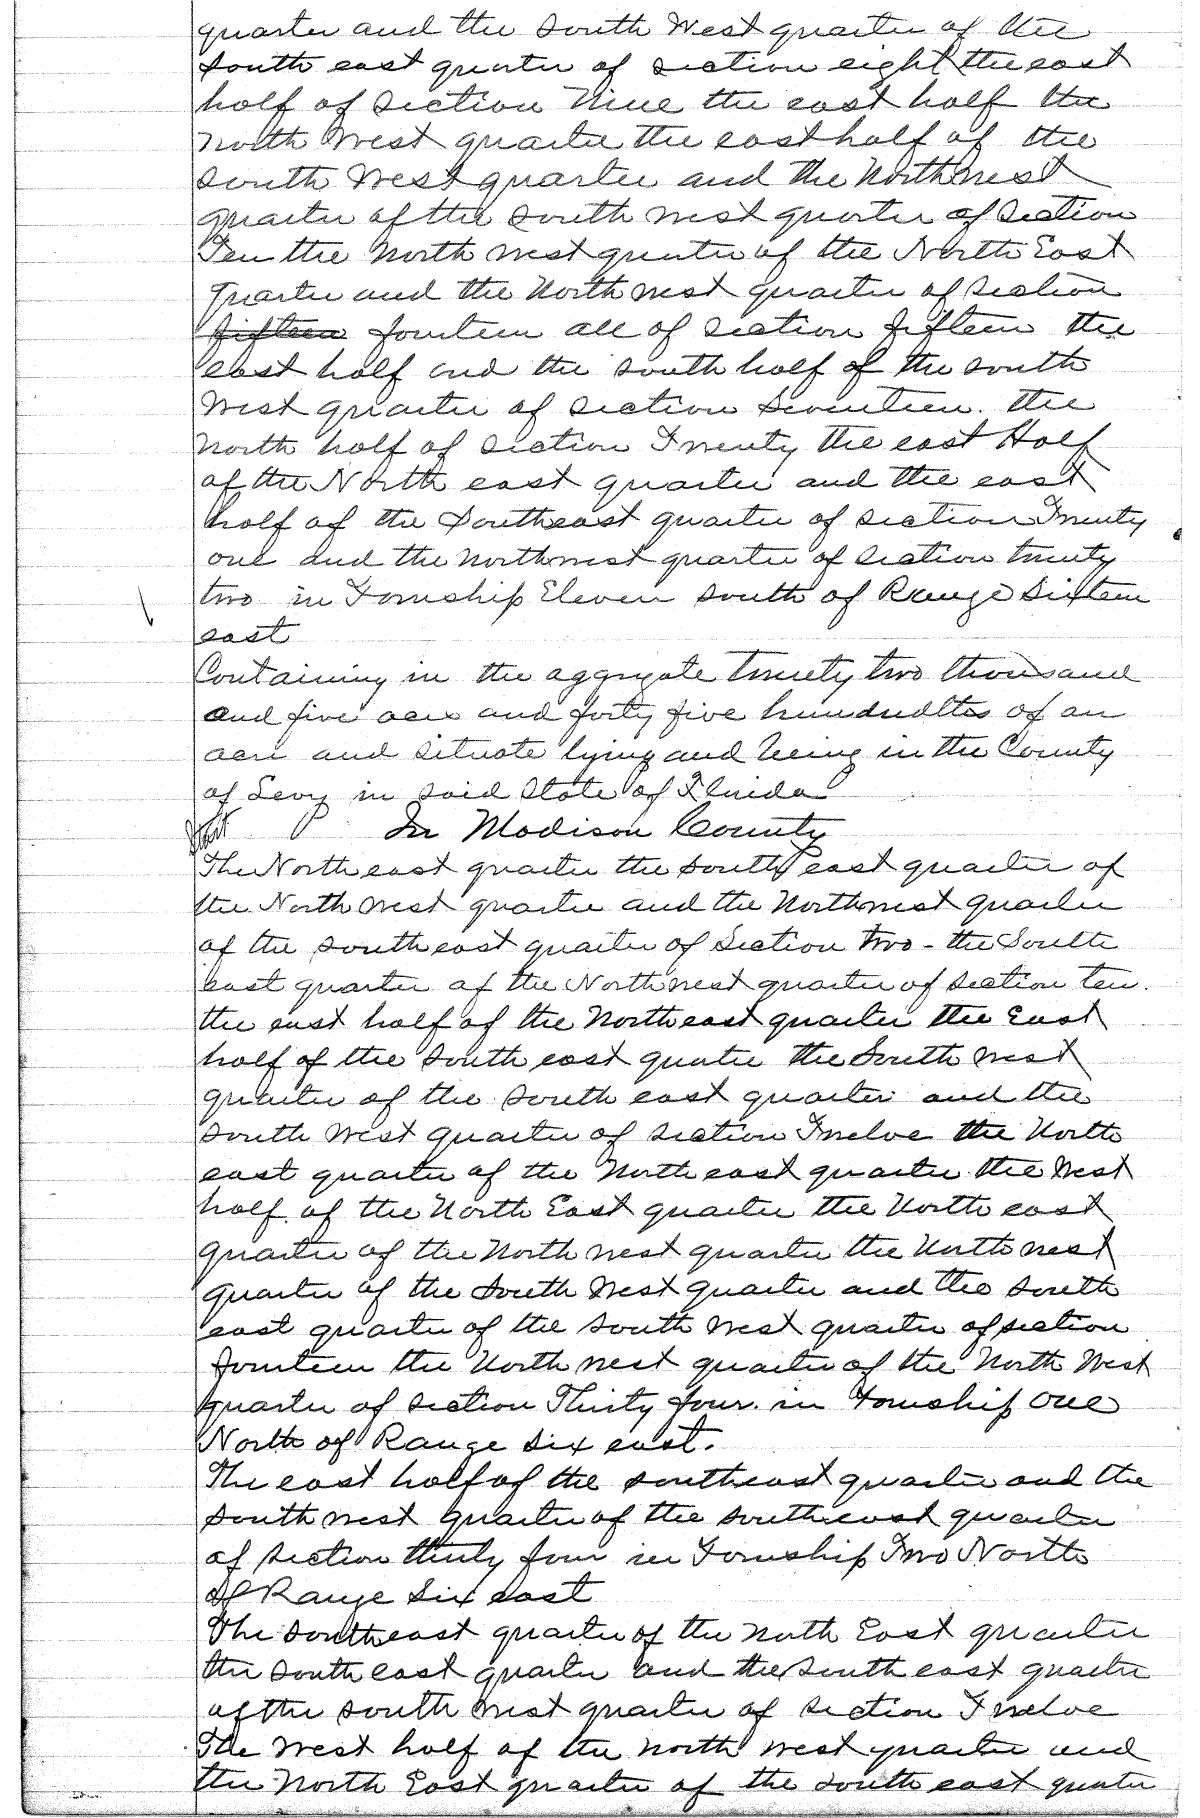 quarter and the South West quarter of the
South east quarter of section eight the east
half of section Nine the east half the
North West quarter the east half of the
South West quarter and the Northwest
quarter of the south west quarter of section
Ten the North west quarter of the North East
quarter and the North west quarter of section
fifteen fourteen all of section fifteen the
east half and the south half of the south
West quarter of section Seventeen. the
North half of section Twenty the east Half
of the North east quarter and the east
half of the Southeast quarter of section Twenty
one and the Northwest quarter of section twenty
two in Township Eleven south of Range Sixteen
east
Containing in the aggregate twenty two thousand
and five acres and forty five hundredths of an
acre and situate lying and being in the County
of Levy in said State of Florida
Start In Madison County
The North east quarter the south east quarter of
the North west quarter and the Northwest quarter
of the south east quarter of Section two - the South
east quarter of the North west quarter of section ten.
the east half of the North east quarter the East
half of the South east quater the South west
quarter of the south east quarter and the
South West quarter of section Twelve the North
east quarter of the North east quarter the West
half of the North East quarter the North east
quarter of the North west quarter the North west
quarter of the South West quarter and the south
east quarter of the South West quarter of section
fourteen the North west quarter of the North West
quarter of section Thirty four. in Township one
North of Range Six east.
The east half of the southeast quarter and the
South west quarter of the southeast quarter
of section thirty four in Township Two North
of Range Six east
The southeast quarter of the North East quarter
the south east quarter and the south east quarter
of the south west quarter of section Twelve
The West half of the North West quarter and
the North East quarter of the south east quater